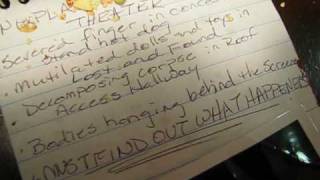 THEATER
• Severed finger in conces
Stand hot dog
• Mutilated dolls and toys in
Lost and Found
• Decomposing corpse in Roof
Access Hallway
• Bodies hanging behind the Screen
MUST FIND OUT WHAT HAPPENED